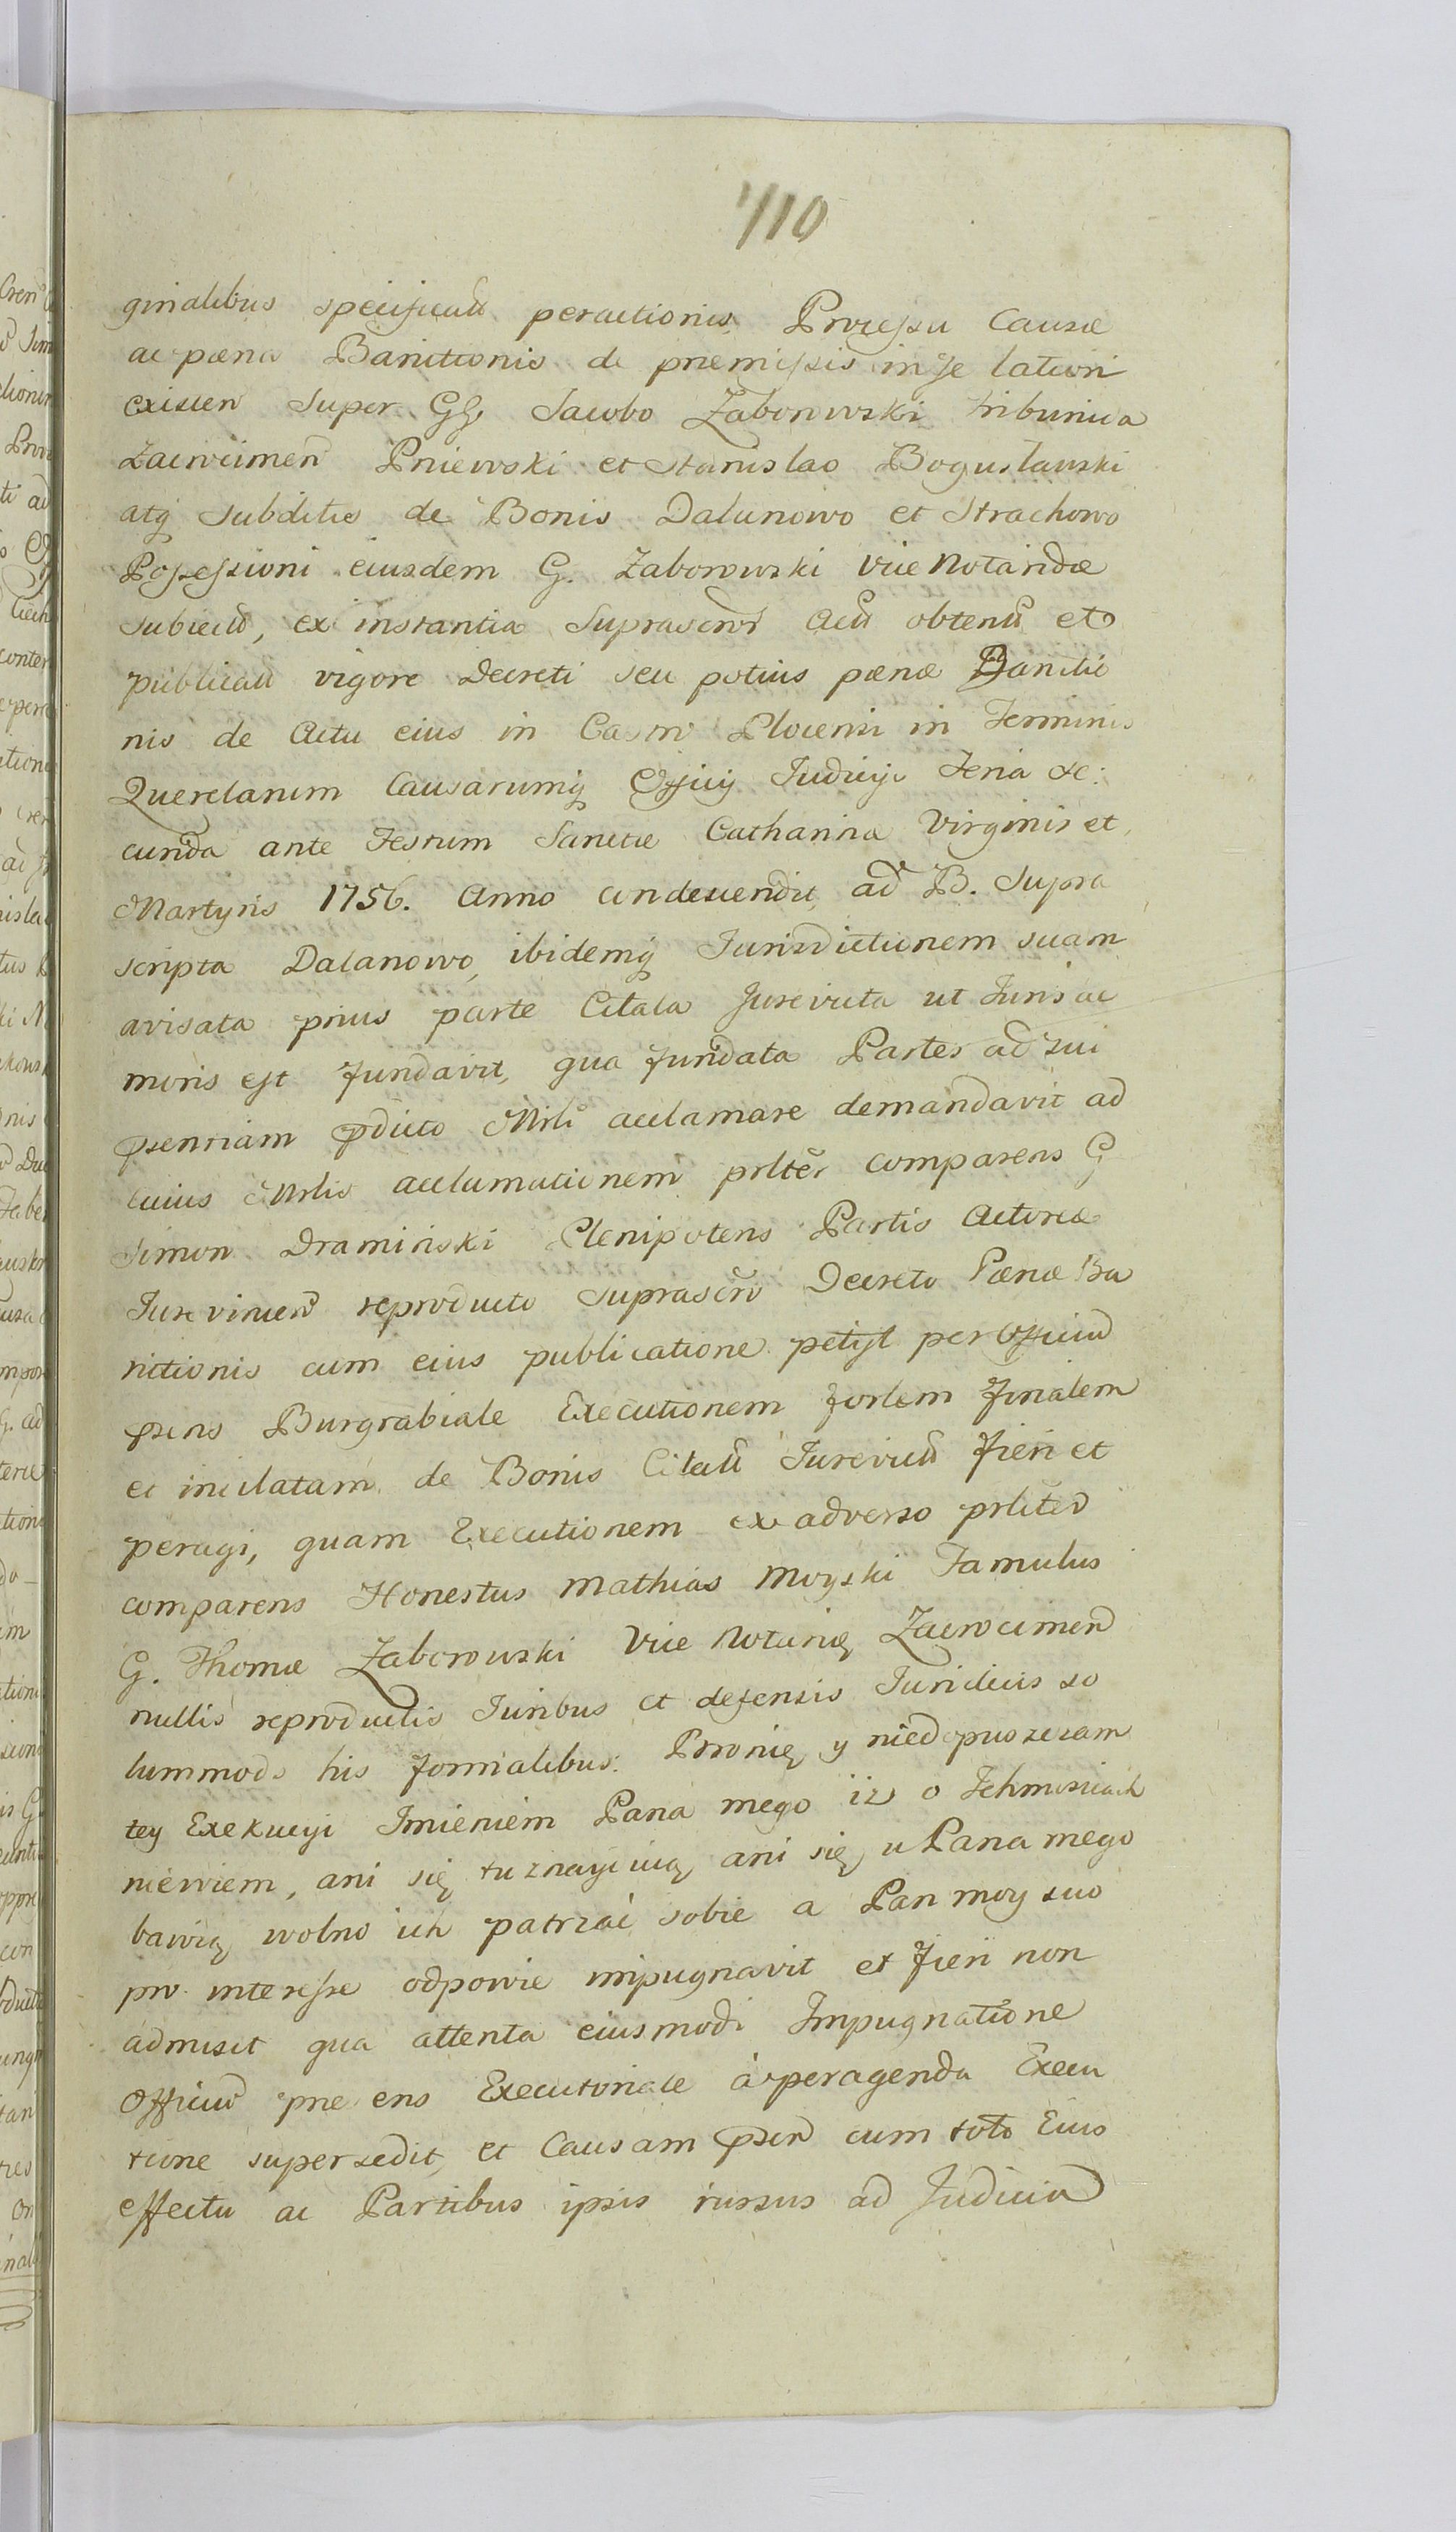 110
ginalibus specificatt peractionis Processu Causæ
ac pæna Banitionis de præmissis in se latiori
existen Super GG Jacobo Zaborowski tribunica
Zacrocimen Pniewski et Stanislao Bogusławski
atq Subditis de Bonis Dalanowo et Strachowo
Possessioni eiusdem G. Zaborowski Vice Notaridæ
Subiectt, ex instantia Suprascrpt Actt obtentt et
publicatt vigore Decreti seu potius pænæ Banitio
nis de Actu eius in Castro Plocensi in Terminis
Querelarum Causarumq Officij Judicij Feria Se:
cunda ante Festum Sanctæ Catharinæ Virginis et
Martyris 1756. Anno condescendit ad B. Supra
scripta Dalanowo, ibidemq Jurisdictionem suam
avisata prius parte Citata Jurevicta ut Juris ac
moris est fundavit, qua fundata Partes ad sui
psentiam pdicto Mrli acclamare demandavit ad
cuius Mrlis acclamationem prlter comparens G
Simon Dramiński Plenipotens Partis Actoreæ
Jurevincen reproducto suprascro Decreto Pænæ Ba
nitionis cum eius publicatione petijt per Officiu
psens Burgrabiale Executionem forlem finalem
et inclatam de Bonis Citatt Jurevictt fieri et
peragi, quam Executionem ex adverso prliter
comparens Honestus Mathias Moyski Famulus
G. Thomæ Zaborowski Vice Notarię Zacrocimen
nullis reproductis Juribus et defensis Juridicis so
lummodo his formalibus: Bronię y niedopuszczam
tey Exekucyi Imieniem Pana mego iz o Jchmosciach
niewiem, ani się tu znayduią, ani się u Pana mego
bawią wolno ich patrzać sobie a Pan moy suo
pro interesse odpowie impugnavit et fieri non
admisit qua attenta eiusmodi Impugnatione
Officiu præ ens Executoriale à peragenda Execu
tione supersedit, et Causam psen cum toto Eius
effectu ac Partibus ipsis rursus ad Judicia